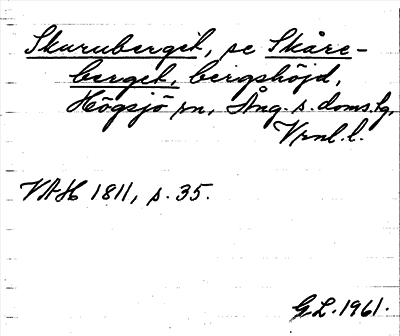 Skuruberget, se Skåre-
berget, bergshöjd,
Högsjö sn, Ång. s. doms.tg,
Vrnl. l.
VAH 1811, s. 35.
GL. 1961.